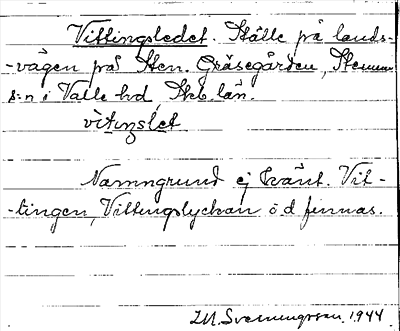 Vittingsledet. Ställe på lands-
-vägen på Sten. Gräsegården, Stenums
s:n i Valle hd, Skb. län.
vìtıŋslet
Namngrund ej känt. Vit-
-tingen, Vittingslyckan o.d finnas.
M. Svenungsson. 1944